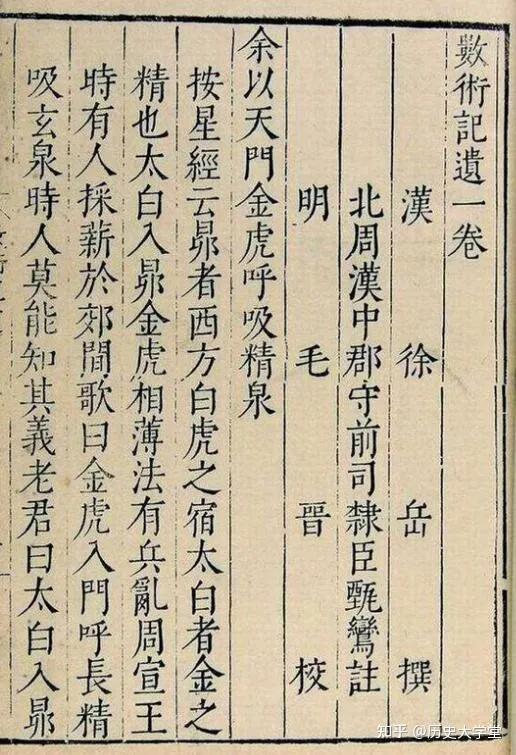 數術記遺一卷
漢 徐岳 撰
北周漢中郡守前司隸臣甄鸞註
明 毛晉 校
余以天門金虎呼吸精泉
按星經云昴者西方白虎之宿太白者金之
精也太白入昴金虎相薄法有兵亂周宣王
時有人採薪於郊間歌曰金虎入門呼長精
吸玄泉時人莫能知其義老君曰太白入昴
知乎 @历史大学堂